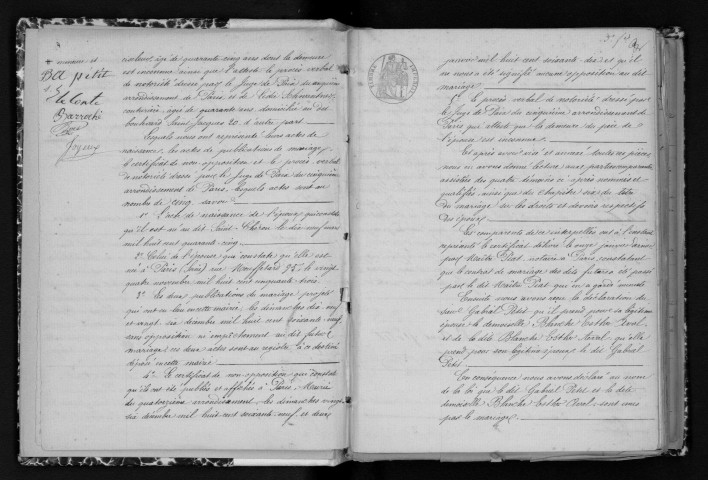 BA petit
Le Conte
Barroché
Joyeux
est inconnu ainsi que l'atteste le procès verbal
de notoriété dressé par le Juge de Paix du cinquième
arrondissement de Paris, et de
âgé de quarante ans domicilié à
boulevard Saint Jacques 20, d'autre part
Lesquels nous ont représenté leurs actes de
naissance, les actes de publications de mariage,
le certificat de non opposition et le procès verbal
de notoriété dressé par le Juge de Paix du cinquième
arrondissement de Paris, lesquels actes sont au
nombre de cinq savoir
1° L'acte de naissance de l'époux qui constate
qu'il est né au dit Saint-Chéron le dix neuf mars
mil huit cent quarante cinq
2° Celui de l'épouse qui constate qu'elle est
née à Paris (Seine) rue Mouffetard 95, le vingt
quatre novembre mil huit cent cinquante trois
3° Les deux publications de mariage projeté
qui ont eu lieu en cette mairie, les dimanches dix neuf
et vingt six décembre mil huit cent soixante neuf,
sans opposition ni empêchement au dit futur
mariage
4° Le certificat de non opposition qui constate
qu'ils ont été publiés et affichés à Paris, Mairie
du quatorzième arrondissement, les dimanches vingt
six décembre mil huit cent soixante neuf et deux
janvier mil huit cent soixante dix et qu'il
ne nous a été signifié aucune opposition au dit
mariage
5° Le procès verbal de notoriété dressé par
le Juge de Paix du cinquième arrondissement de
Paris qui atteste que la demeure du père de
l'épouse est inconnue
Et après avoir visé et annexé toutes ces pièces,
nous en avons donné lecture aux parties comparantes
assistées des quatre témoins ci après nommés et
qualifiés, ainsi que du chapitre six du titre
du mariage sur les droits et devoirs respectifs
des époux
Les comparants de ce interpellés ont à l'instant
représenté le certificat délivré le onze janvier
par Maître Piat, notaire à Paris, constatant
que le contrat de mariage des dits futurs a été passé
par le dit Maître Piat qui en a gardé minute
Ensuite nous avons reçu la déclaration du
sieur Gabriel Petit qu'il prend pour sa légitime
épouse la demoiselle Blanche Esther
et de la dite Blanche Esther qu'elle
prend pour son légitime époux le dit Gabriel
Petit
En conséquence nous avons déclaré au nom
de la loi que le dit Gabriel Petit et la dite
demoiselle Blanche Esther sont unis
par le mariage